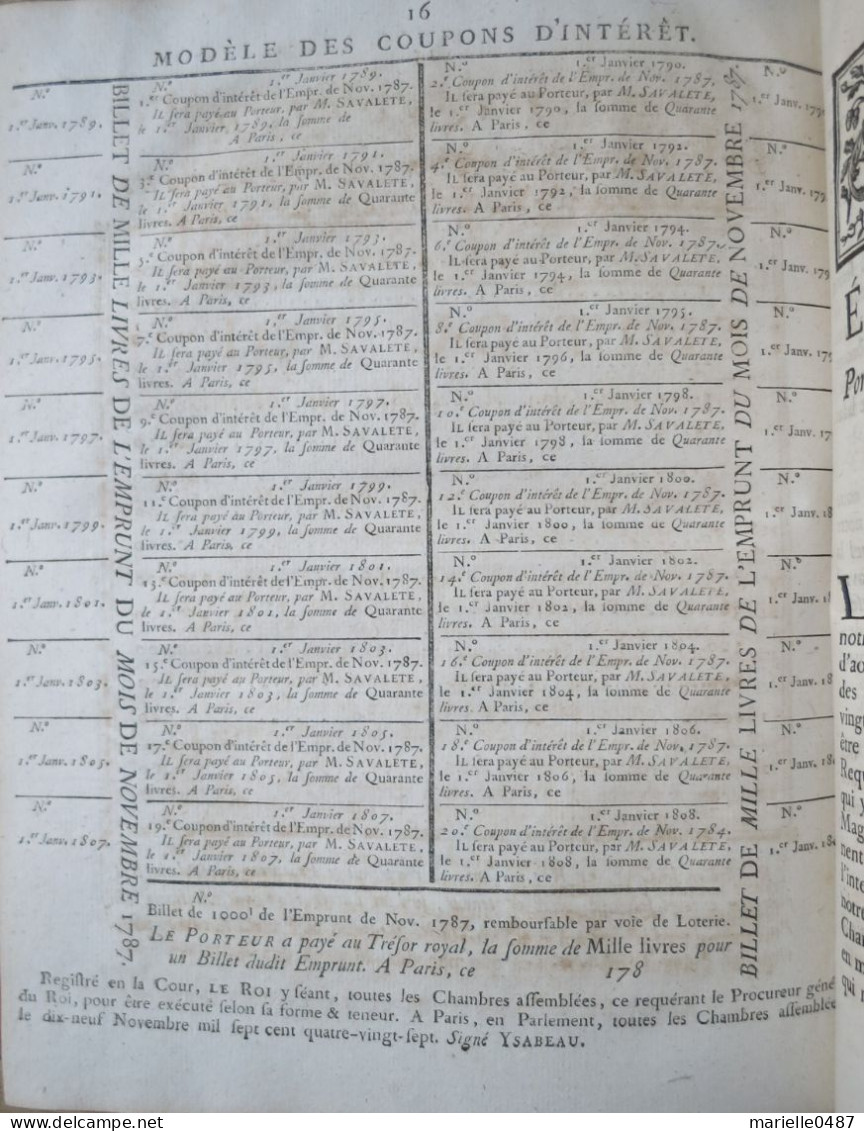 16
MODÈLE DES COUPONS D'INTÉRÊT.
N.º
1.er Janv. 1789.
N.º
1.er Janv. 1791.
N.º
1.er Janv. 1793.
N.º
1.er Janv. 1795.
N.º
1.er Janv. 1797.
N.º
1.er Janv. 1799.
N.º
1.er Janv. 1801.
N.º
1.er Janv. 1803.
N.º
1.er Janv. 1805.
N.º
1.er Janv. 1807.
BILLET DE MILLE LIVRES DE L'EMPRUNT DU MOIS DE NOVEMBRE 1787.
N.º 1.er Janvier 1789.
1.er Coupon d'intérêt de l'Empr. de Nov. 1787.
IL ſera payé au Porteur, par M. SAVALETE,
le 1.er Janvier 1789, la ſomme de
A Paris, ce
N.º 1.er Janvier 1791.
3.e Coupon d'intérêt de l'Empr. de Nov. 1787.
IL ſera payé au Porteur, par M. SAVALETE,
le 1.er Janvier 1791, la ſomme de Quarante
livres. A Paris, ce
N.º 1.er Janvier 1793.
5.e Coupon d'intérêt de l'Empr. de Nov. 1787.
IL ſera payé au Porteur, par M. SAVALETE,
le 1.er Janvier 1793, la ſomme de Quarante
livres. A Paris, ce
N.º 1.er Janvier 1795.
7.e Coupon d'intérêt de l'Empr. de Nov. 1787.
IL ſera payé au Porteur, par M. SAVALETE,
le 1.er Janvier 1795, la ſomme de Quarante
livres. A Paris, ce
N.º 1.er Janvier 1797.
9.e Coupon d'intérêt de l'Empr. de Nov. 1787.
IL ſera payé au Porteur, par M. SAVALETE,
le 1.er Janvier 1797, la ſomme de Quarante
livres. A Paris, ce
N.º 1.er Janvier 1799.
11.e Coupon d'intérêt de l'Empr. de Nov. 1787.
IL ſera payé au Porteur, par M. SAVALETE,
le 1.er Janvier 1799, la ſomme de Quarante
livres. A Paris, ce
N.º 1.er Janvier 1801.
13.e Coupon d'intérêt de l'Empr. de Nov. 1787.
IL ſera payé au Porteur, par M. SAVALETE,
le 1.er Janvier 1801, la ſomme de Quarante
livres. A Paris, ce
N.º 1.er Janvier 1803.
15.e Coupon d'intérêt de l'Empr. de Nov. 1787.
IL ſera payé au Porteur, par M. SAVALETE,
le 1.er Janvier 1803, la ſomme de Quarante
livres. A Paris, ce
N.º 1.er Janvier 1805.
17.e Coupon d'intérêt de l'Empr. de Nov. 1787.
IL ſera payé au Porteur, par M. SAVALETE,
le 1.er Janvier 1805, la ſomme de Quarante
livres. A Paris, ce
N.º 1.er Janvier 1807.
19.e Coupon d'intérêt de l'Empr. de Nov. 1787.
IL ſera payé au Porteur, par M. SAVALETE,
le 1.er Janvier 1807, la ſomme de Quarante
livres. A Paris, ce
N.º 1.er Janvier 1790.
2.e Coupon d'intérêt de l'Empr. de Nov. 1787.
IL ſera payé au Porteur, par M. SAVALETE,
le 1.er Janvier 1790, la ſomme de Quarante
livres. A Paris, ce
N.º 1.er Janvier 1792.
4.e Coupon d'intérêt de l'Empr. de Nov. 1787.
IL ſera payé au Porteur, par M. SAVALETE,
le 1.er Janvier 1792, la ſomme de Quarante
livres. A Paris, ce
N.º 1.er Janvier 1794.
6.e Coupon d'intérêt de l'Empr. de Nov. 1787.
IL ſera payé au Porteur, par M. SAVALETE,
le 1.er Janvier 1794, la ſomme de Quarante
livres. A Paris, ce
N.º 1.er Janvier 1795.
8.e Coupon d'intérêt de l'Empr. de Nov. 1787.
IL ſera payé au Porteur, par M. SAVALETE,
le 1.er Janvier 1796, la ſomme de Quarante
livres. A Paris, ce
N.º 1.er Janvier 1798.
10.e Coupon d'intérêt de l'Empr. de Nov. 1787.
IL ſera payé au Porteur, par M. SAVALETE,
le 1.er Janvier 1798, la ſomme de Quarante
livres. A Paris, ce
N.º 1.er Janvier 1800.
12.e Coupon d'intérêt de l'Empr. de Nov. 1787.
IL ſera payé au Porteur, par M. SAVALETE,
le 1.er Janvier 1800, la ſomme de Quarante
livres. A Paris, ce
N.º 1.er Janvier 1802.
14.e Coupon d'intérêt de l'Empr. de Nov. 1787.
IL ſera payé au Porteur, par M. SAVALETE,
le 1.er Janvier 1802, la ſomme de Quarante
livres. A Paris, ce
N.º 1.er Janvier 1804.
16.e Coupon d'intérêt de l'Empr. de Nov. 1787.
IL ſera payé au Porteur, par M. SAVALETE,
le 1.er Janvier 1804, la ſomme de Quarante
livres. A Paris, ce
N.º 1.er Janvier 1806.
18.e Coupon d'intérêt de l'Empr. de Nov. 1787.
IL ſera payé au Porteur, par M. SAVALETE,
le 1.er Janvier 1806, la ſomme de Quarante
livres. A Paris, ce
N.º 1.er Janvier 1808.
20.e Coupon d'intérêt de l'Empr. de Nov. 1784.
IL ſera payé au Porteur, par M. SAVALETE,
le 1.er Janvier 1808, la ſomme de Quarante
livres. A Paris, ce
BILLET DE MILLE LIVRES DE L'EMPRUNT DU MOIS DE NOVEMBRE 1787.
N.º
1.er Janv. 179
N.º
1.er Janv. 179
N.º
1.er Janv. 179
N.º
1.er Janv. 179
N.º
1.er Janv. 17
N.º
1.er Janv. 18
N.º
1.er Janv. 18
N.º
1.er Janv. 18
N.º
1.er Janv. 180
N.º
1.er Janv. 180
N.º
Billet de 1000l de l'Emprunt de Nov. 1787, rembourſable par voie de Loterie.
LE PORTEUR a payé au Tréſor royal, la ſomme de Mille livres pour
un Billet dudit Emprunt. A Paris, ce 178
Regiſtré en la Cour, LE ROI y ſéant, toutes les Chambres aſſemblées, ce requérant le Procureur géné
du Roi, pour être exécuté ſelon ſa forme & teneur. A Paris, en Parlement, toutes les Chambres aſſemblée
le dix-neuf Novembre mil ſept cent quatre-vingt-ſept. Signé YSABEAU.
É
Por
L
notr
d'ao
des
vingt
être
Requ
qui y
Mag
nent
l'inte
notre
Chan
en m
qui n
marielle0487